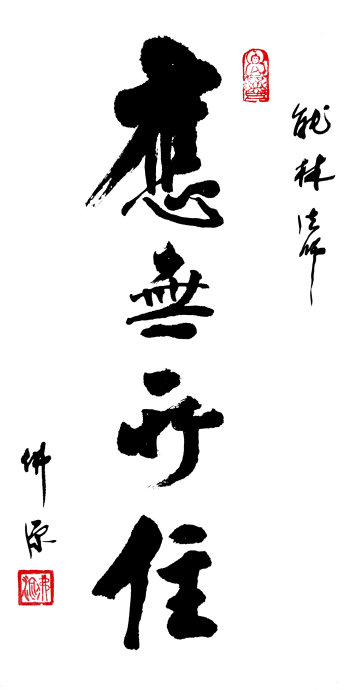 能林法师
應無所住
佛源